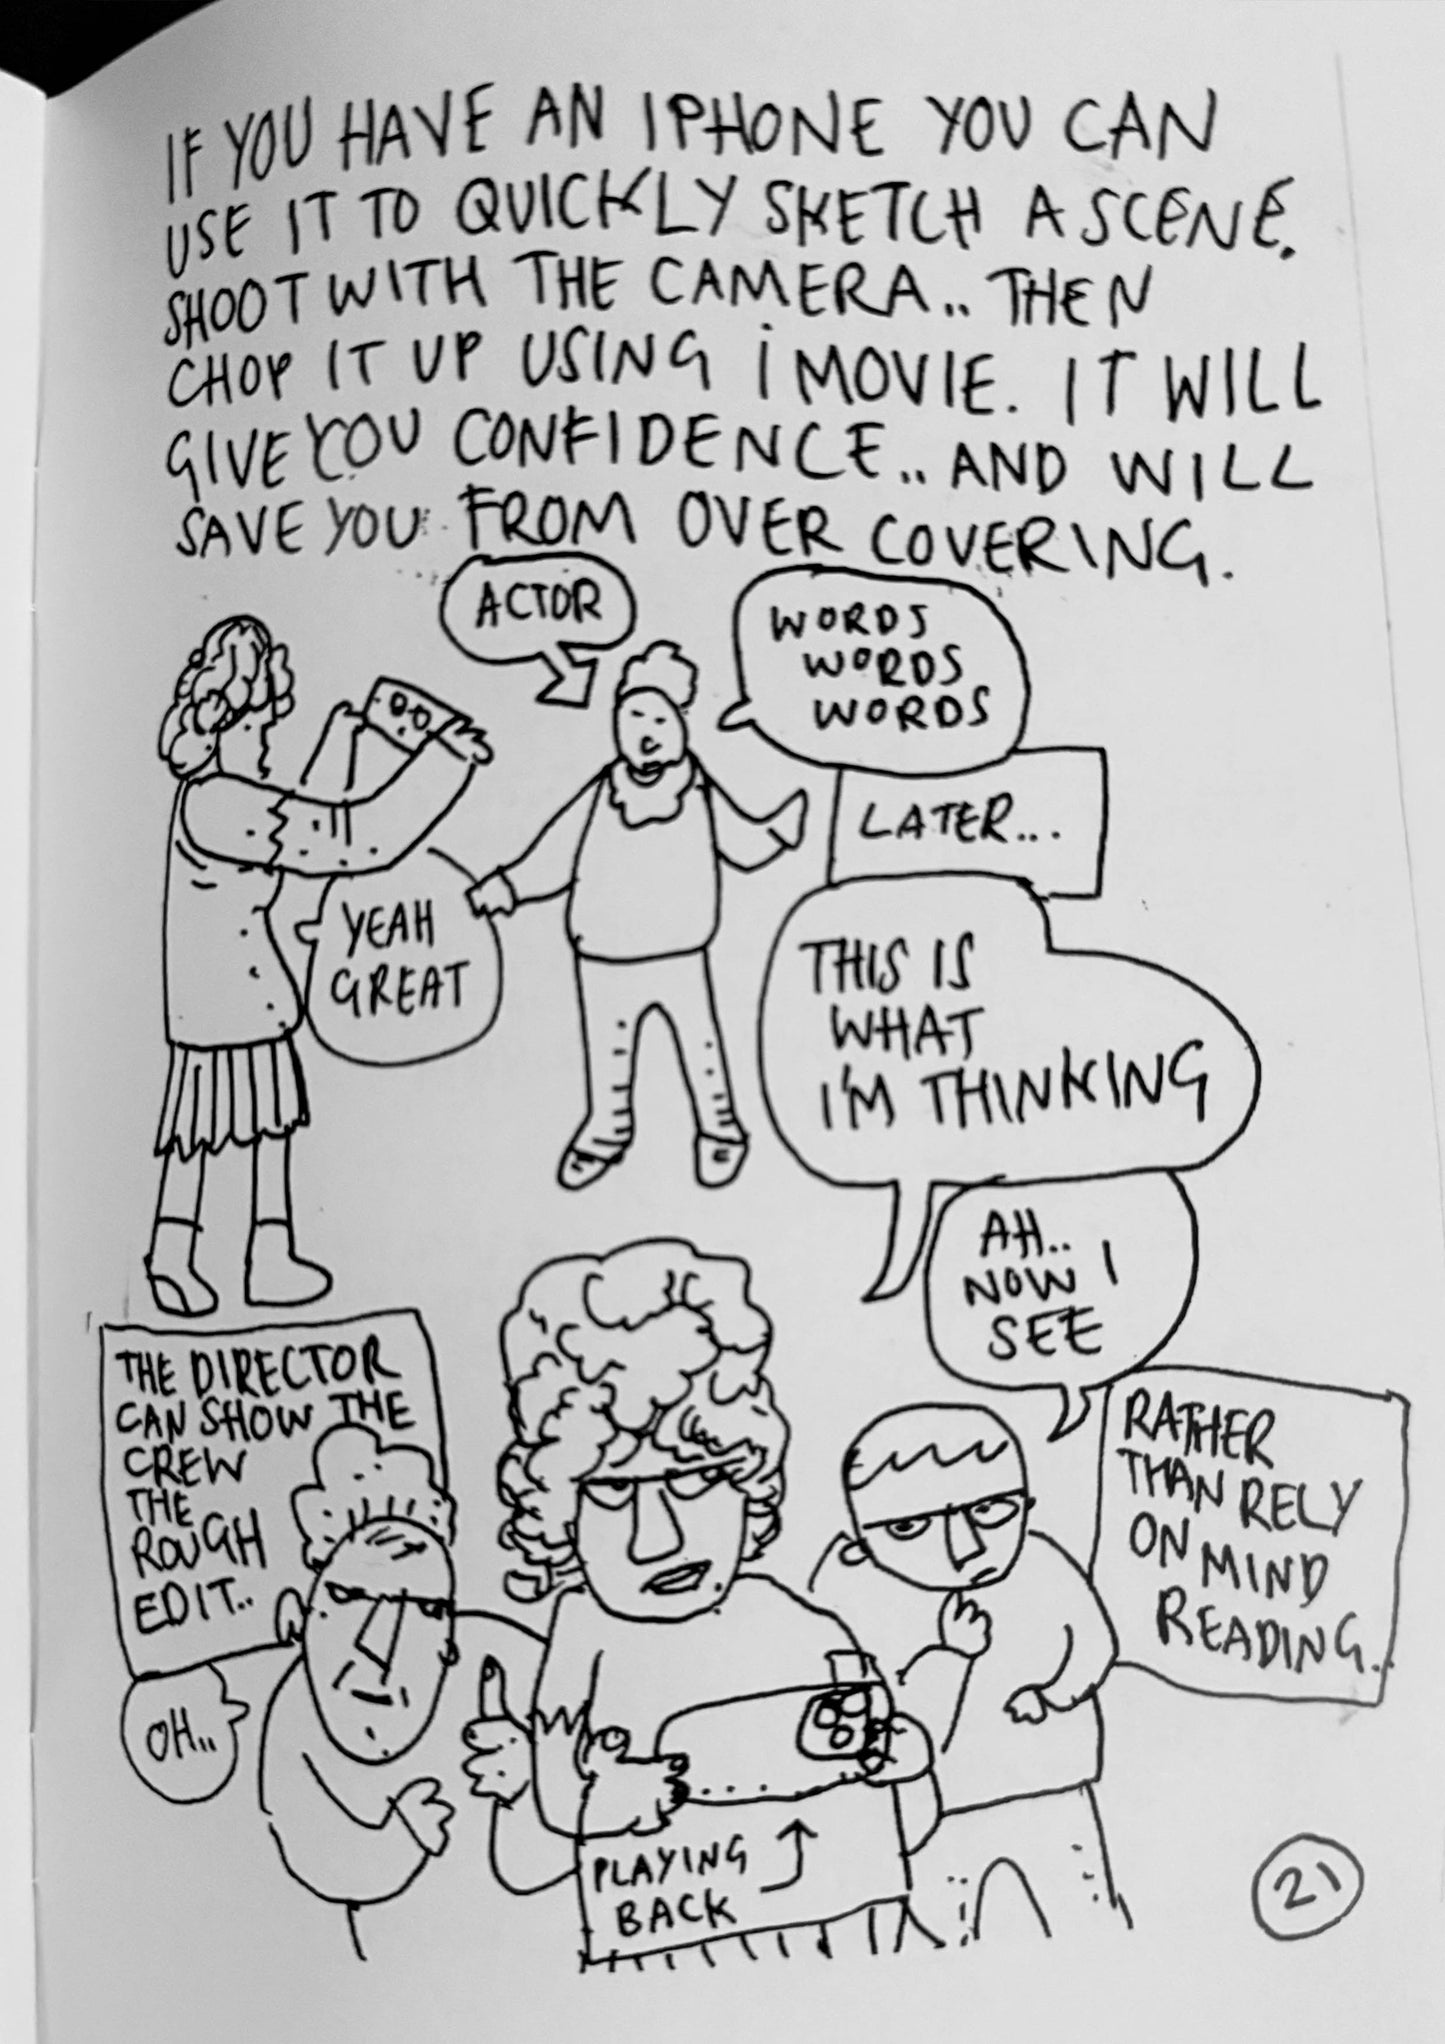 IF YOU HAVE AN IPHONE YOU CAN
USE IT TO QUICKLY SKETCH A SCENE.
SHOOT WITH THE CAMERA.. THEN
CHOP IT UP USING iMOVIE. IT WILL
GIVE YOU CONFIDENCE.. AND WILL
SAVE YOU FROM OVER COVERING.
ACTOR
WORDS
WORDS
WORDS
LATER...
YEAH
GREAT
THIS IS
WHAT
I'M THINKING
AH..
NOW I
SEE
THE DIRECTOR
CAN SHOW THE
CREW
THE
ROUGH
EDIT..
RATHER
THAN RELY
ON MIND
READING..
OH..
PLAYING
BACK
21